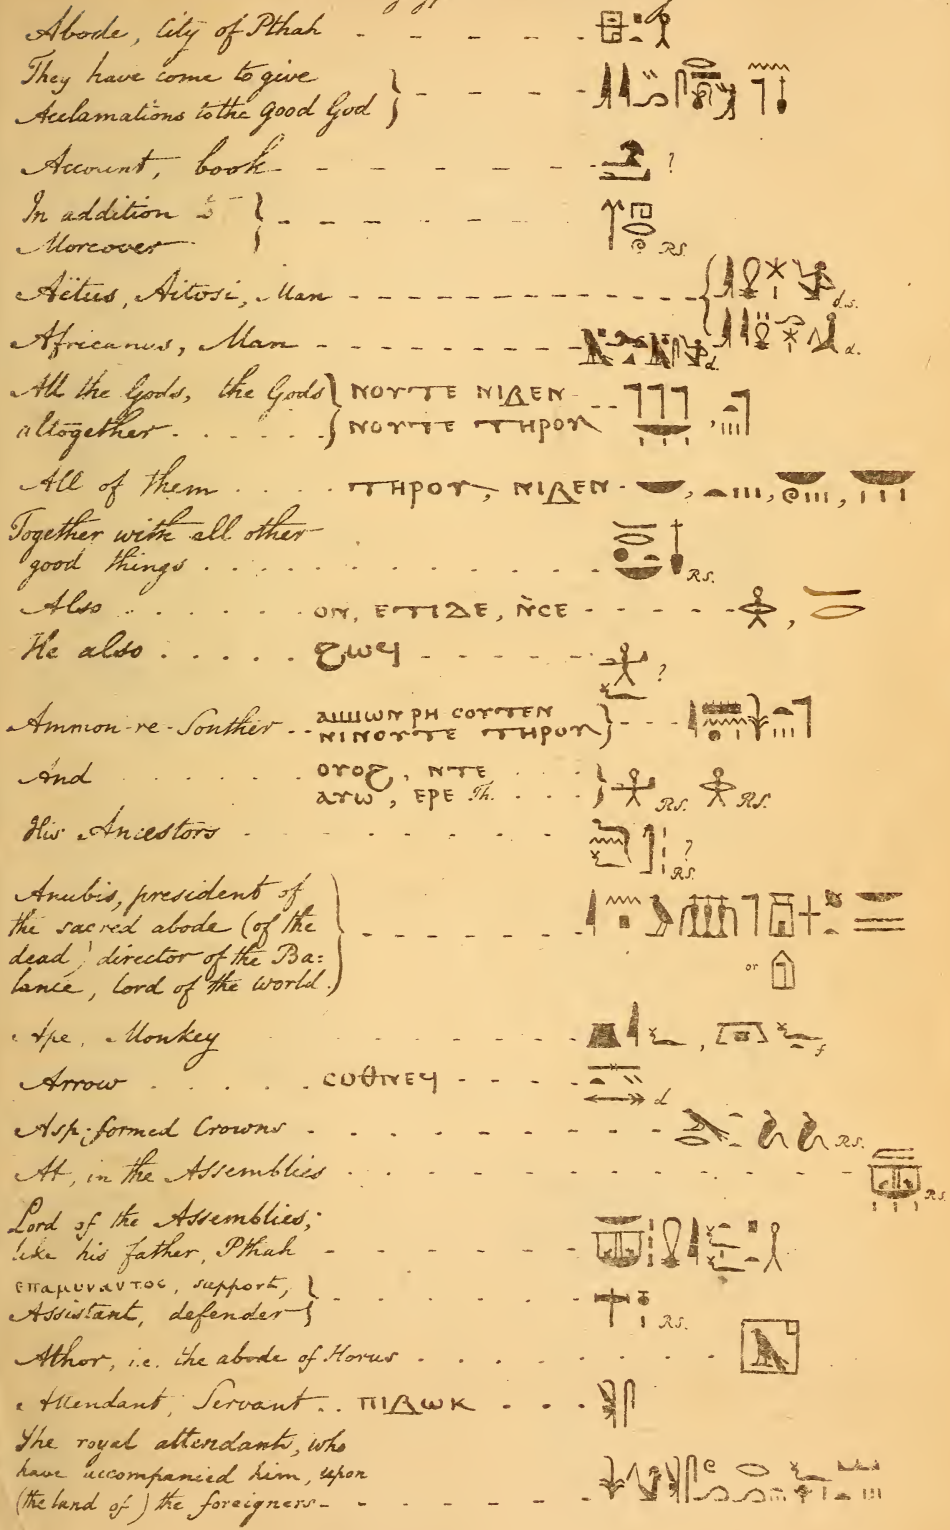 Abode, City of Pthah
They have come to give
Acclamations to the good God
Account, book ?
In addition to
Moreover R.S.
Aëtus, Aitosi, Man d.s.
d.
Africanus, Man d.
All the Gods, the Gods ⲛⲟⲩⲧⲉ ⲛⲓⲃⲉⲛ
altogether ⲛⲟⲩⲧⲉ ⲧⲏⲣⲟⲩ
All of them ⲧⲏⲣⲟⲩ, ⲛⲓⲃⲉⲛ
Together with all other
good things R.S.
Also ⲟⲛ, ⲉⲧⲓⲇⲉ, ⲛ̀ⲥⲉ
He also ϩⲱϥ ?
Ammon-re-Souther ⲁⲙⲙⲱⲛ ⲣⲏ ⲥⲟⲩⲧⲉⲛ
ⲛⲓⲛⲟⲩⲧⲉ ⲧⲏⲣⲟⲩ
And ⲟⲩⲟϩ, ⲛⲧⲉ
ⲁⲩⲱ, ⲉⲣⲉ Th. R.S. R.S.
His Ancestors ? R.S.
Anubis, president of
the sacred abode (of the
dead) director of the Ba=
lance, lord of the world. or
Ape, Monkey f
Arrow ⲥⲟⲑⲛⲉϥ d
Asp-formed Crowns R.S.
At, in the Assemblies R.S.
Lord of the Assemblies,
like his father, Pthah
επαμυναντος, support,
Assistant, defender R.S.
Athor, i.e. the abode of Horus
Attendant, Servant ⲡⲓⲃⲱⲕ
The royal attendants, who
have accompanied him, upon
(the land of) the foreigners